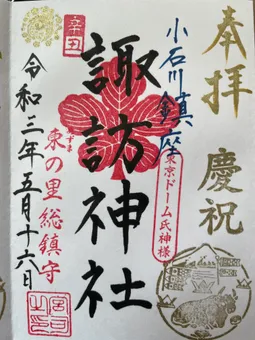 奉拝 慶祝
小石川鎮座
東京ドーム氏神様
諏訪神社
辛丑
東の里総鎮守
令和三年五月十六日